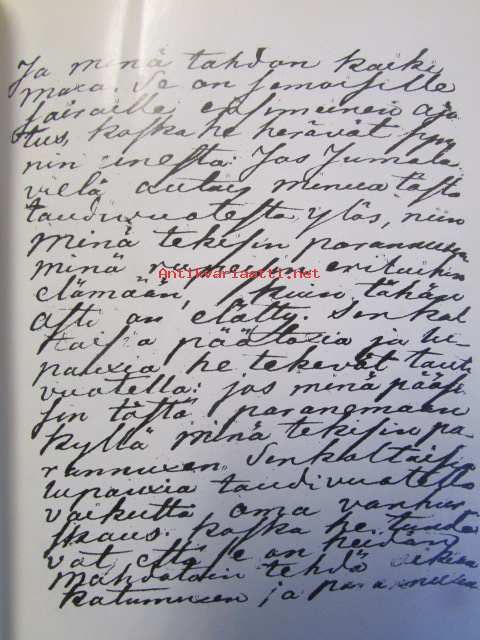 Ja minä tahdon kaiki
maxa. Se on semoisille
sairaille ensimeinen aja
tus, koska he heräwät syn
nin unesta: Jos Jumala
vielä autais minua tästä
taudivuotesta ylös, niin
minä tekisin parannuxen
minä rupeisin erilaihin
elämään, kuin tähän
asti on eletty. Senkal
taisia päätöxia ja lu
pauxia he tekevät tauti
vuotella: jos minä pääsi
sin tästä paranemaan
kyllä minä tekisin pa
rannuxen. Senkaltaisia
lupauxia taudivuotella
vaikutta oma vanhur
skaus. koska he tunde
vat, että se on heidän
mahdotoin tehdä oikian
katumuxen ja parannuxen
Antikvariaatti.net